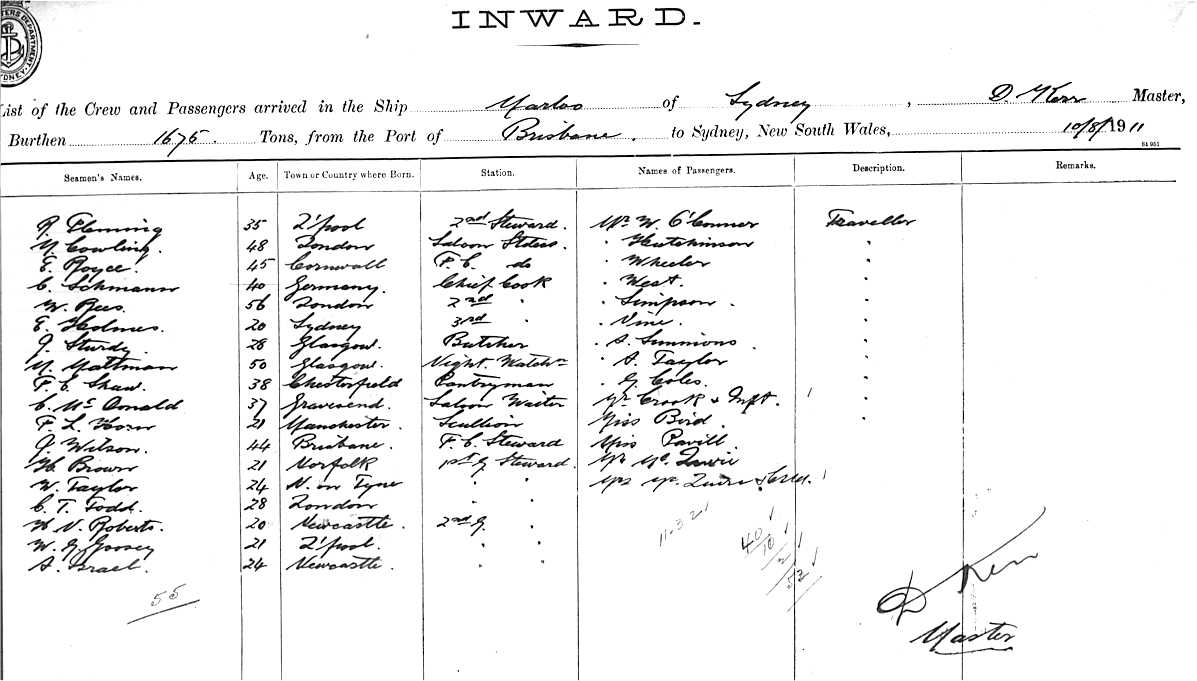 INWARD.
DEPARTMENT. SYDNEY
List of the Crew and Passengers arrived in the Ship Marloo of Sydney, D. Kerr Master,
Burthen 1675. Tons, from the Port of Brisbane. to Sydney, New South Wales, 10/8/1911
S1 951
Seamen's Names. Age. Town or Country where Born. Station. Names of Passengers. Description. Remarks.
R. Fleming 35 L'pool 2nd Steward. Mr. W. O'Connor Traveller
M. Cowling. 48 London Saloon Stdess. " Hutchinson "
E. Royce. 45 Cornwall F. C. do " Wheeler "
C. Schmann 40 Germany. Chief Cook " West. "
W. Rees. 56 London 2nd " " Simpson. "
E. Holmes. 20 Sydney 3rd " " Vine. "
J. Sturdy. 28 Glasgow. Butcher " A. Simmons "
M. Mattman 50 Glasgow. Night. Watchn " A. Taylor "
F. C. Shaw. 38 Chesterfield Pantryman " G. Coles. "
C. McDonald 37 Gravesend. Saloon Waiter Mr Crook & Inft. "
F. L. Horn 21 Manchester. Scullion Miss Bird. "
J. Wilson. 44 Brisbane. F. C. Steward Miss Pavill
H. Brown 21 Norfolk 1st G Steward. Mr Mc
W. Taylor 24 N. on Tyne " " Mrs Mc
C. T. Todd. 28 London " "
H. V. Roberts. 20 Newcastle. 2nd G. "
W. G. Goosey 21 L'pool. " "
A. Israel. 24 Newcastle. " "
55
11-3-21
40
10
2
52
D Kerr
Master